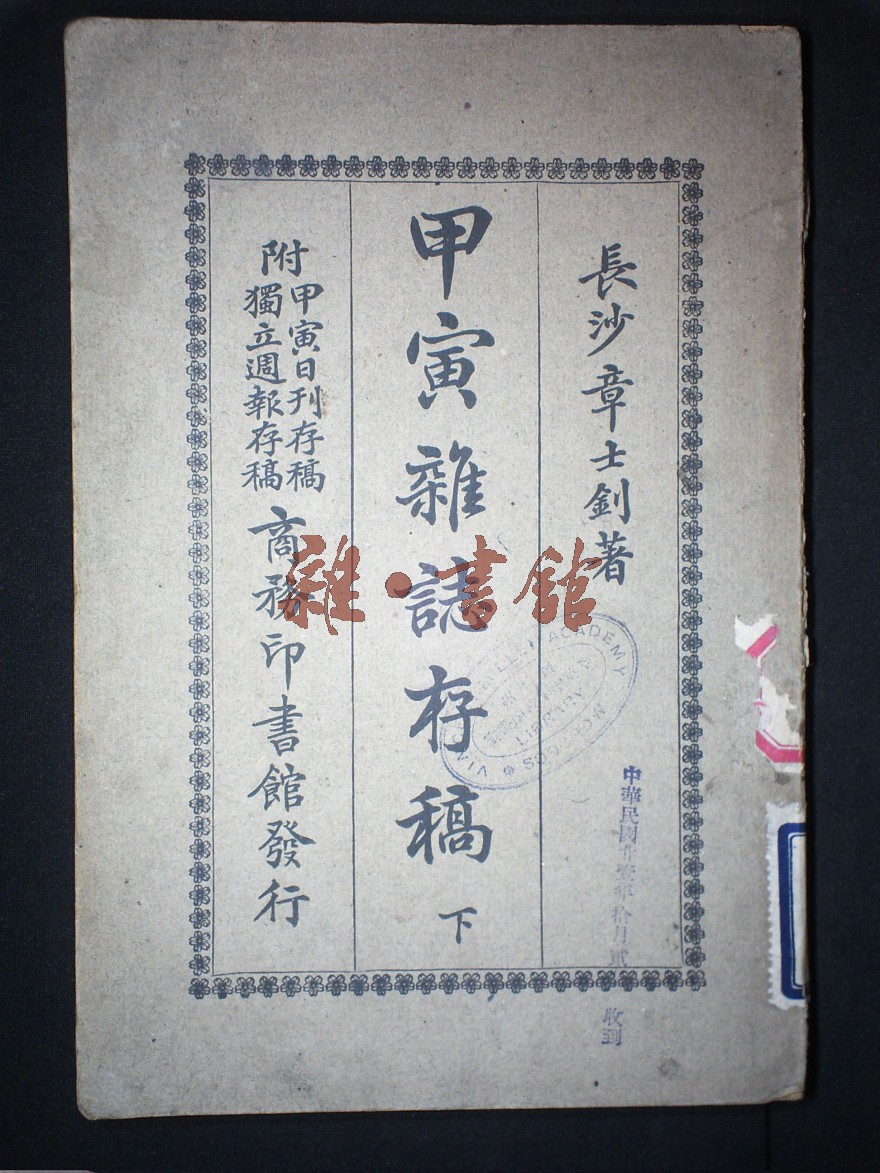 長沙章士釗著
甲寅雜誌存稿 下
附甲寅日刊存稿
獨立週報存稿
商務印書館發行
雜·書館
ACADEMY
LIBRARY
中華民國廿壹年拾月貳
收到